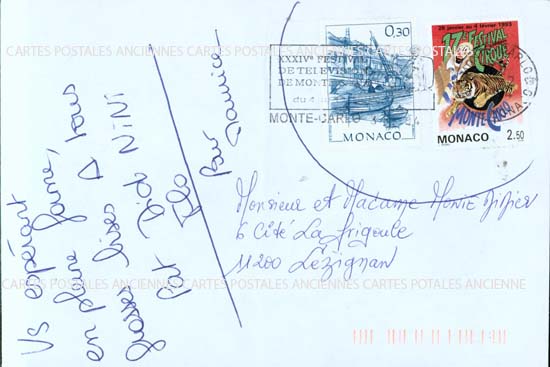 Vs espérant
en pleine forme,
grosses bises A tous
Pat Dido NiNi
Flo
Bar Dominico
CARTES POSTALES ANCIENNES CARTES POSTALES ANCIENNES CARTES POSTALES ANCIENNE
0,30
MONACO
28 janvier au 4 février 1993
17e FESTIVAL
CIRQUE
MONTE-CARLO
MONACO 2.50
XXXIVe FESTIVAL
DE TELEVISION
DE MONTE
du 4
MONTE-CARLO
Monsieur et Madame Didier
6 Cité La Frigoule
11200 Lézignan
CARTES POSTALES ANCIENNES CARTES POSTALES ANCIENNES CARTES POSTALES ANCIENNE